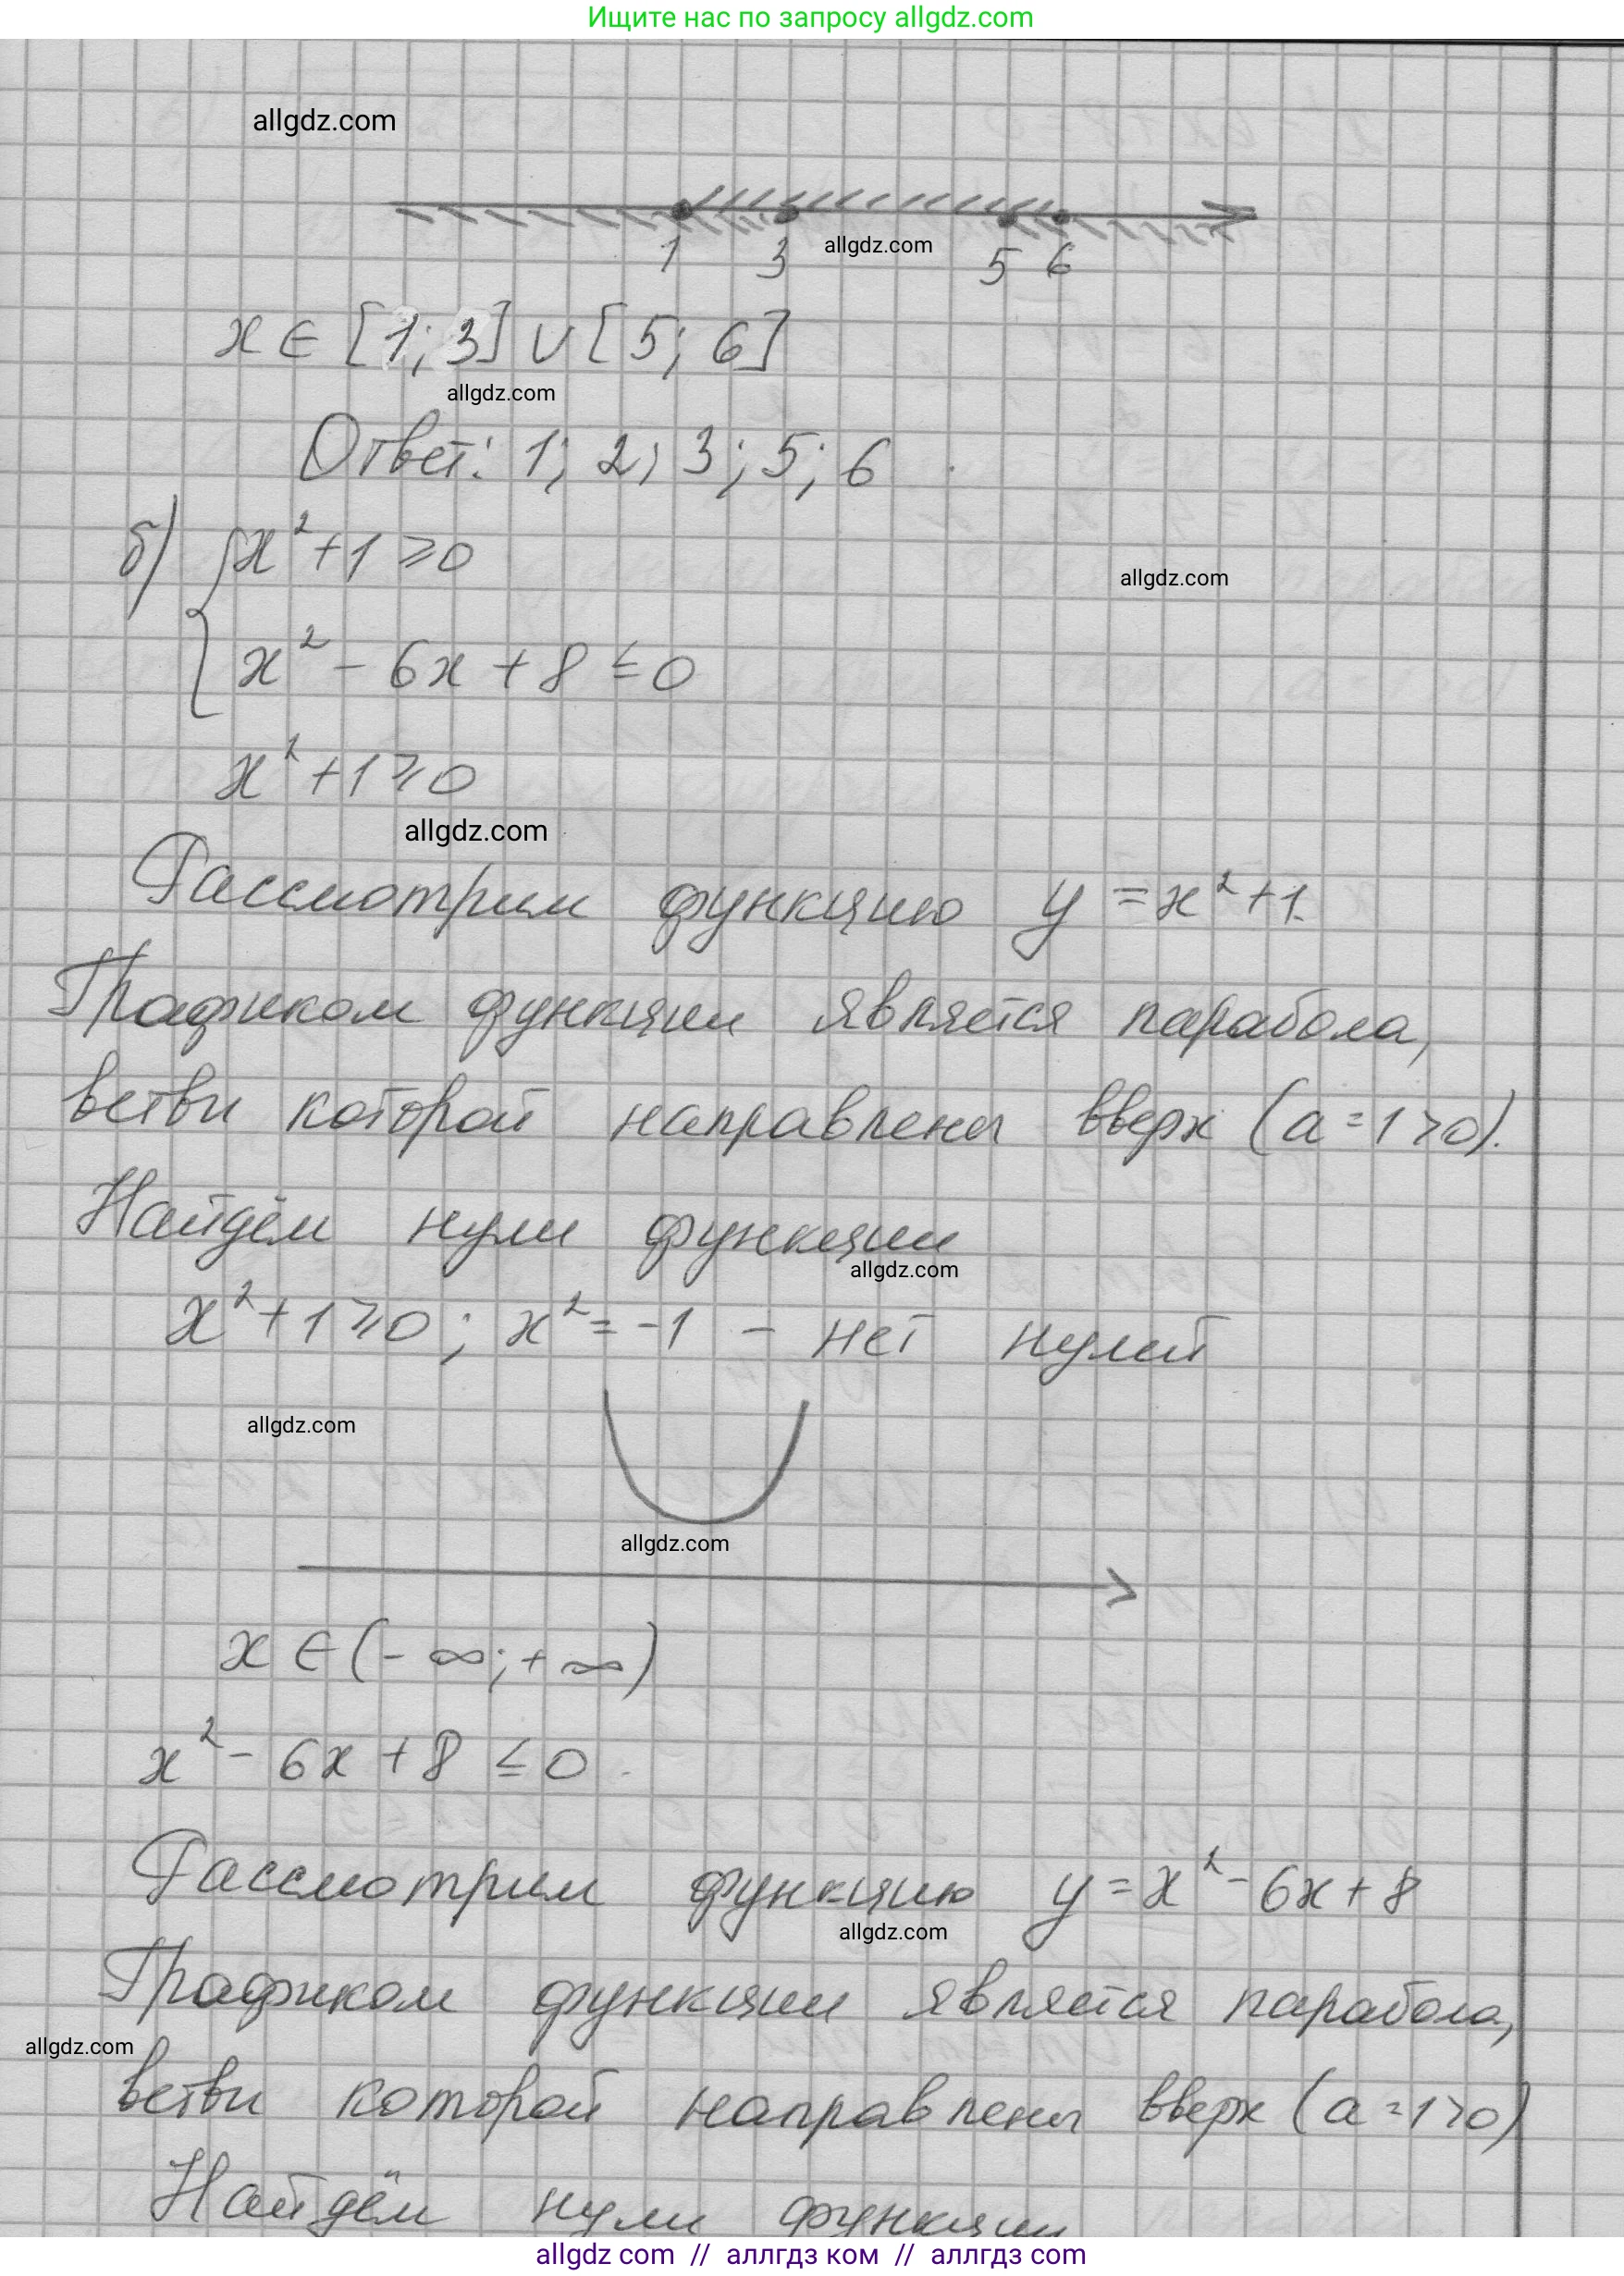 Ищите нас по запросу allgdz.com
allgdz.com
1 3 allgdz.com 5 6
x ∈ [1; 3] ∪ [5; 6]
allgdz.com
Ответ: 1; 2; 3; 5; 6
б) { x² + 1 ≥ 0
allgdz.com
x² - 6x + 8 ≤ 0
x² + 1 ≥ 0
allgdz.com
Рассмотрим функцию y = x² + 1.
Графиком функции является парабола,
ветви которой направлены вверх (a = 1 > 0).
Найдём нули функции
allgdz.com
x² + 1 ≥ 0; x² = -1 - нет нулей
allgdz.com
allgdz.com
x ∈ (-∞; +∞)
x² - 6x + 8 ≤ 0
Рассмотрим функцию y = x² - 6x + 8
allgdz.com
Графиком функции является парабола,
allgdz.com
ветви которой направлены вверх (a = 1 > 0)
Найдём нули функции
allgdz com // аллгдз ком // аллгдз com